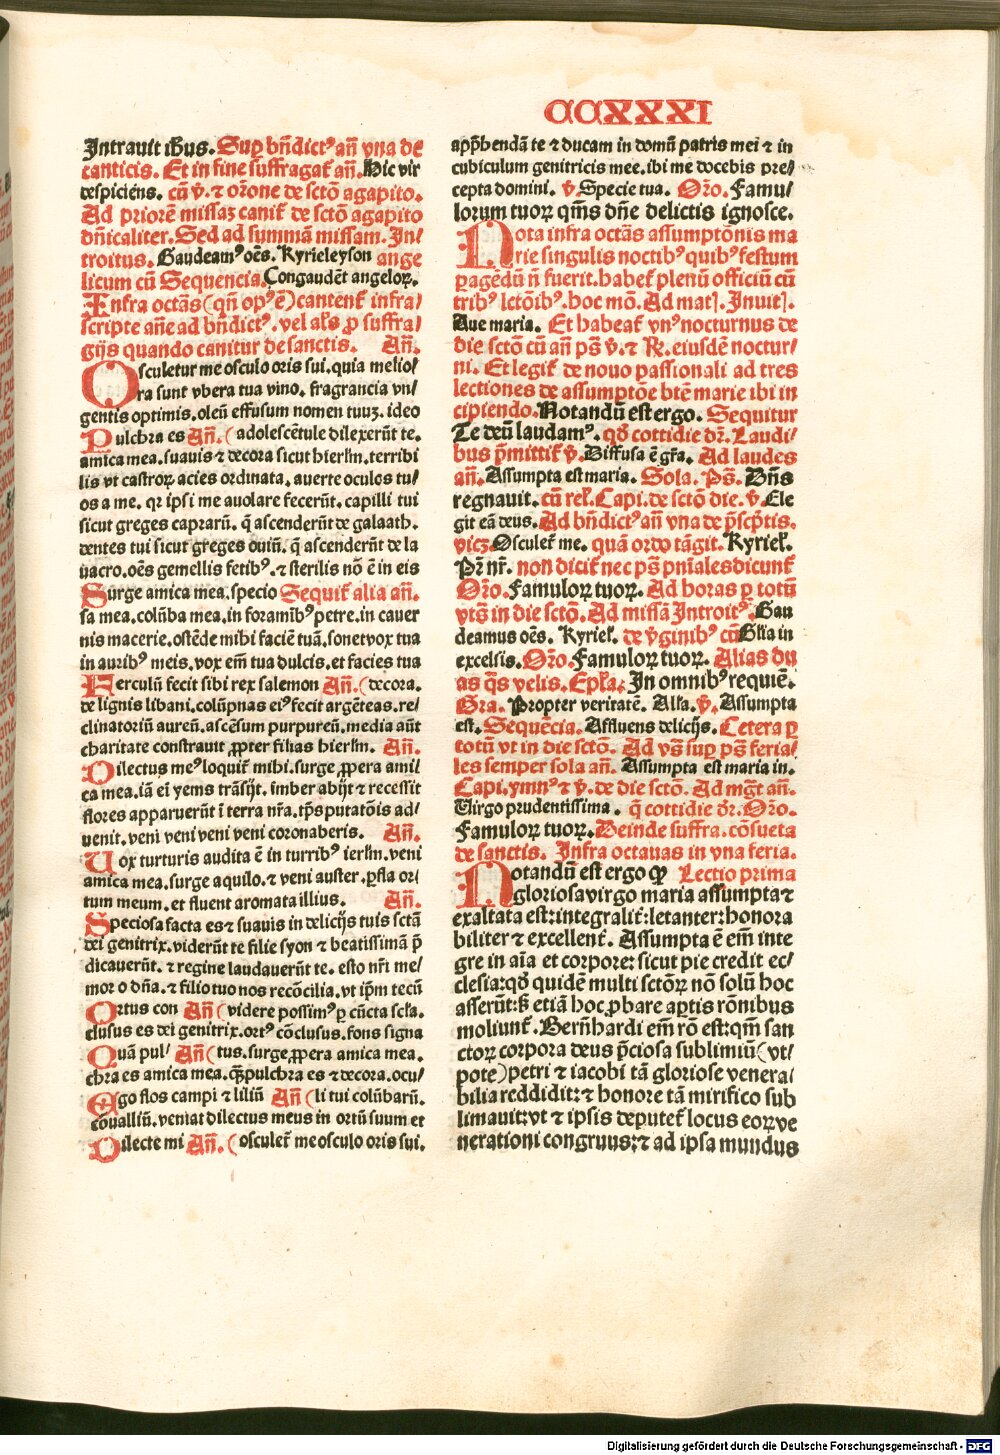 CCXXXI
Intrauit ihus. Sup bn̄dict⁹ an̄ vna de
canticis. Et in fine suffragat̄ an̄. Hic vir
despiciens. cū v̄. ⁊ orōne de sctō agapito.
Ad priorē missaꝫ canit̄ de sctō agapito
dn̄icaliter. Sed ad summā missam. In/
troitus. Gaudeam⁹ oēs. Kyrieleyson ange
licum cū Sequencia. Congaudēt angeloꝝ.
Infra octās (qn̄ op⁹ ē) cantent̄ infra/
scripte an̄e ad bn̄dict⁹. vel al̄s ꝓ suffra/
gijs quando canitur de sanctis. An̄.
Osculetur me osculo oris sui. quia melio/
ra sunt vbera tua vino. fragrancia vn/
gentis optimis. oleū effusum nomen tuuꝫ. ideo
Pulchra es An̄. ( adolescētule dilexerūt te.
amica mea. suauis ⁊ decora sicut hierl̄m. terribi
lis vt castroꝝ acies ordinata. auerte oculos tu/
os a me. qr ipsi me auolare fecerūt. capilli tui
sicut greges caprarū. q̄ ascenderūt de galaath.
dentes tui sicut greges ouiū. q̄ ascenderūt de la
uacro. oēs gemellis fetib⁹. ⁊ sterilis nō ē in eis
Surge amica mea. specio Sequit̄ alia an̄.
sa mea. colūba mea. in foramib⁹ petre. in cauer
nis macerie. ostēde mihi faciē tuā. sonet vox tua
in aurib⁹ meis. vox em̄ tua dulcis. et facies tua
Ferculū fecit sibi rex salemon An̄. ( decora.
de lignis libani. colūpnas ei⁹ fecit argēteas. re/
clinatoriū aureū. ascēsum purpureū. media aūt
charitate constrauit ꝓpter filias hierl̄m. An̄.
Dilectus me⁹ loquit̄ mihi. surge ꝓpera ami/
ca mea. iā ei yems trāsijt. imber abijt ⁊ recessit
flores apparuerūt ī terra nr̄a. tp̄s putatōis ad/
uenit. veni veni veni veni coronaberis. An̄.
Uox turturis audita ē in turrib⁹ ierl̄m. veni
amica mea. surge aquilo. ⁊ veni auster. ꝑfla or/
tum meum. et fluent aromata illius. An̄.
Speciosa facta es ⁊ suauis in delicijs tuis sctā
dei genitrix. viderūt te filie syon ⁊ beatissimā p̄
dicauerūt. ⁊ regine laudauerūt te. esto nr̄i me/
mor o dn̄a. ⁊ filio tuo nos recōcilia. vt ip̄m tecū
Ortus con An̄ ( videre possim⁹ ꝑ cūcta scl̄a.
clusus es dei genitrix. ort⁹ cōclusus. fons signa
Quā pul/ An̄ ( tus. surge ꝓpera amica mea.
chra es amica mea. q̄ꝫ pulchra es ⁊ decora. ocu/
Ego flos campi ⁊ liliū An̄ ( li tui colūbarū.
cōualliū. veniat dilectus meus in ortū suum et
Dilecte mi An̄. ( osculet̄ me osculo oris sui.
app̄hendā te ⁊ ducam in domū patris mei ⁊ in
cubiculum genitricis mee. ibi me docebis pre/
cepta domini. v̄ Specie tua. Orō. Famu/
lorum tuoꝝ qm̄s dn̄e delictis ignosce.
Nota infra octās assumptōnis ma
rie singulis noctib⁹ quib⁹ festum
pagēdū n̄ fuerit. habet̄ plenū officiū cū
trib⁹ lctōib⁹. hoc mō. Ad mat̄. Inuit̄.
Aue maria. Et habeat̄ vn⁹ nocturnus de
die sctō cū an̄ ps̄ v̄. ⁊ R̄. eiusdē noctur/
ni. Et legit̄ de nouo passionali ad tres
lectiones de assumptōe btē marie ibi in
cipiendo. Notandū est ergo. Sequitur
Te deū laudam⁹. qd̄ cottidie dr̄. Laudi/
bus p̄mittit̄ v̄. Diffusa ē gr̄a. Ad laudes
an̄. Assumpta est maria. Sola. Ps̄. Dn̄s
regnauit. cū rel̄. Capi. de sctō die. v̄. Ele
git eā deus. Ad bn̄dict⁹ an̄ vna de p̄scp̄tis.
vicꝫ. Osculet̄ me. quā ordo tāgit. Kyriel̄.
Pr̄ nr̄. non dicit̄ nec ps̄ pn̄iales dicunt̄
Orō. Famuloꝝ tuoꝝ. Ad horas ꝑ totū
vts̄ in die sctō. Ad missā Introit⁹. Gau
deamus oēs. Kyriel̄. de v̄ginib⁹ cū Gl̄ia in
excelsis. Orō. Famuloꝝ tuoꝝ. Alias du
as q̄s velis. Epl̄a. In omnib⁹ requiē.
Gra. Propter veritatē. All̄a. v̄. Assumpta
est. Sequēcia. Affluens delicijs. Cetera ꝑ
totū vt in die sctō. Ad vs̄ sup ps̄ feria/
les semper sola an̄. Assumpta est maria in.
Capi. ymn⁹ ⁊ v̄. de die sctō. Ad mḡt an̄.
Virgo prudentissima. q̄ cottidie dr̄. Orō.
Famuloꝝ tuoꝝ. Deinde suffra. cōsueta
de sanctis. Infra octauas in vna feria.
Notandū est ergo ꝙ Lectio prima
gloriosa virgo maria assumpta ⁊
exaltata est: integralit̄: letanter: honora
biliter ⁊ excellent̄. Assumpta ē em̄ inte
gre in aīa et corpore: sicut pie credit ec/
clesia: qd̄ quidē multi sctōꝝ nō solū hoc
asserūt: sꝫ etiā hoc ꝓbare aꝑtis rōnibus
moliunt̄. Bern̄hardi em̄ rō est: qm̄ san
ctoꝝ corpora deus p̄ciosa sublimiū (vt/
pote) petri ⁊ iacobi tā gloriose venera/
bilia reddidit: ⁊ honore tā mirifico sub
limauit: vt ⁊ ipsis deputet̄ locus eoꝝ ve
nerationi congruus: ⁊ ad ipsa mundus
Digitalisierung gefördert durch die Deutsche Forschungsgemeinschaft - DFG